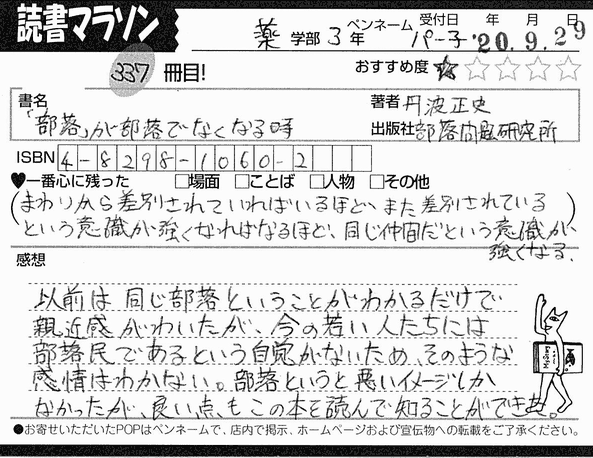 読書マラソン
薬 学部 3 年 ペンネーム パー子 受付日 '20.9.29 年 月 日
337 冊目! おすすめ度 ★☆☆☆☆
書名 「部落」が部落でなくなる時
著者 丹波正史
出版社 部落問題研究所
ISBN 4-8298-1060-2
♥一番心に残った □場面 □ことば □人物 □その他
(まわりから差別されていればいるほど、また差別されている
という意識が強くなればなるほど、同じ仲間だという意識が
強くなる。)
感想
以前は同じ部落ということがわかるだけで
親近感がわいたが、今の若い人たちには
部落民であるという自覚がないため、そのような
感情はわかない。部落というと悪いイメージしか
なかったが、良い点もこの本を読んで知ることができた。
●お寄せいただいたPOPはペンネームで、店内で掲示、ホームページおよび宣伝物への転載をご了承ください。